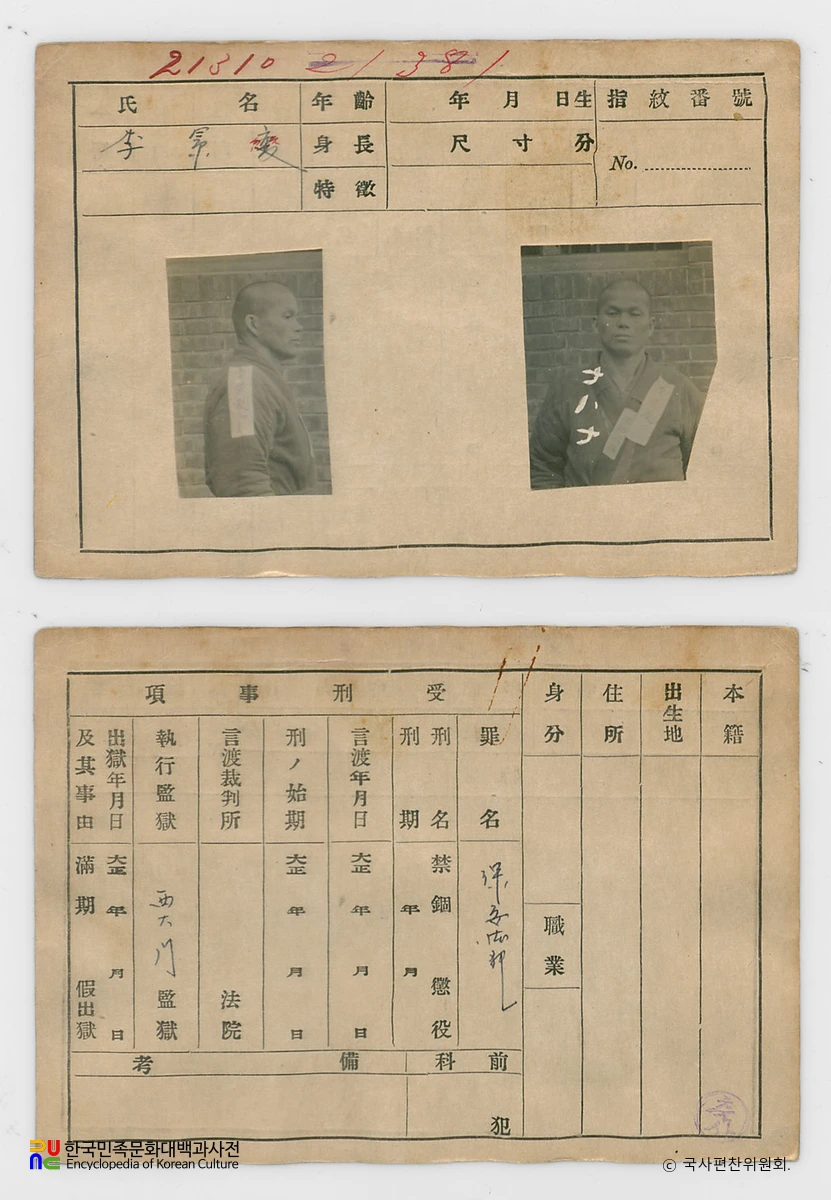 21310 21381
氏名
年齡
年月日生
指紋番號
李景燮
身長
尺寸分
No.
特徵
九一九
本籍
出生地
住所
身分
職業
受刑事項
罪名
保安法犯
刑名
禁錮
懲役
刑期
年月
言渡年月日
大正年月日
刑ノ始期
大正年月日
言渡裁判所
法院
執行監獄
西大門監獄
出獄年月日
及其事由
大正年月日
滿期
假出獄
前科
犯
備考
한국민족문화대백과사전
Encyclopedia of Korean Culture
© 국사편찬위원회.